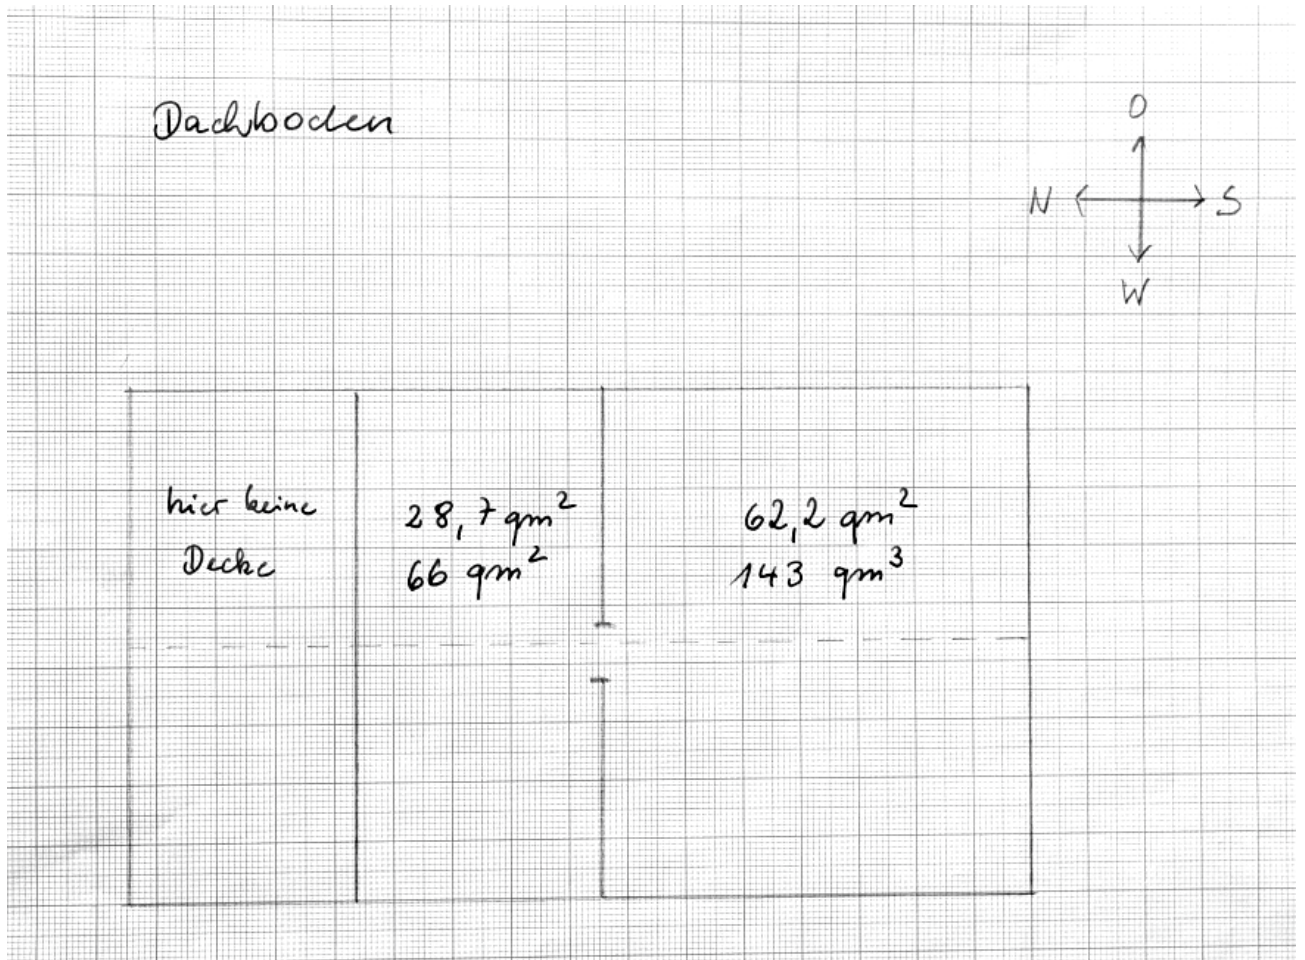 Dachboden
O
N S
W
hier keine
Decke
28,7 qm²
66 qm²
62,2 qm²
143 qm³